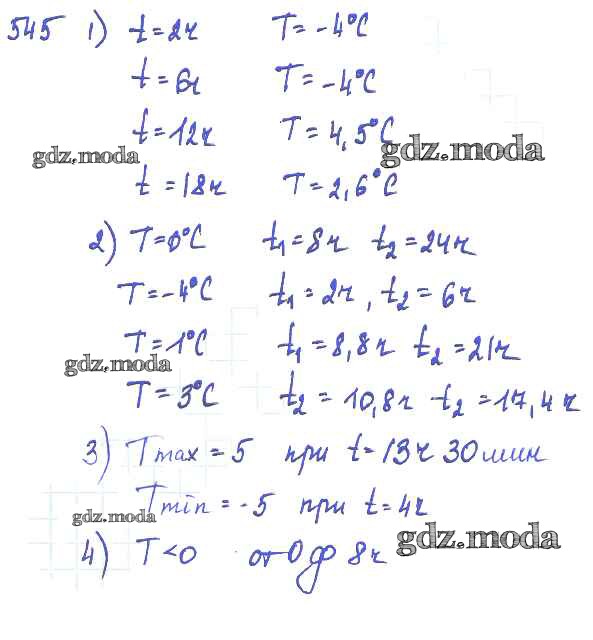 545 1) t=2ч T=-4°C
t=6ч T=-4°C
t=12ч T=4,5°C
gdz.moda gdz.moda
t=18ч T=2,6°C
2) T=0°C t₁=8ч t₂=24ч
T=-4°C t₁=2ч, t₂=6ч
T=1°C t₁=8,8ч t₂=21ч
gdz.moda
T=3°C t₂=10,8ч t₂=17,4ч
3) Tmax=5 при t=13ч 30мин
Tmin=-5 при t=4ч
gdz.moda gdz.moda
4) T<0 от 0 до 8ч